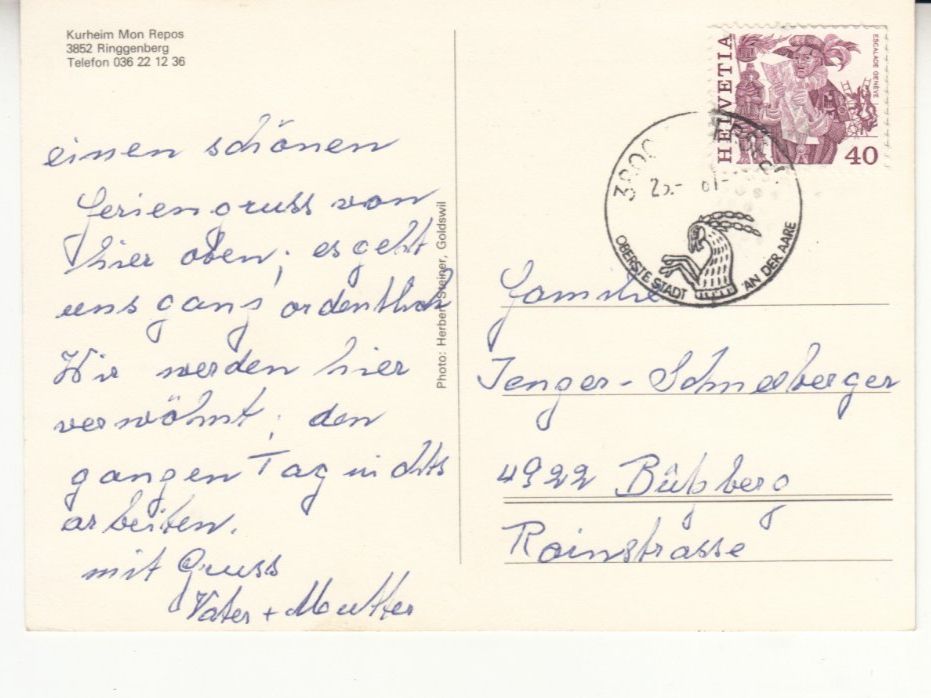 Kurheim Mon Repos
3852 Ringgenberg
Telefon 036 22 12 36
einen schönen
Feriengruss von
hier oben; es geht
uns ganz ordentlich
Wir werden hier
verwöhnt; den
ganzen Tag nichts
arbeiten.
mit Gruss
Vater + Mutter
Photo: Herbert Steiner, Goldswil
HELVETIA
ESCALADE GENÈVE
40
OBERSTE STADT AN DER AARE
Familie
Jenzer-Schneeberger
4922 Bützberg
Rainstrasse